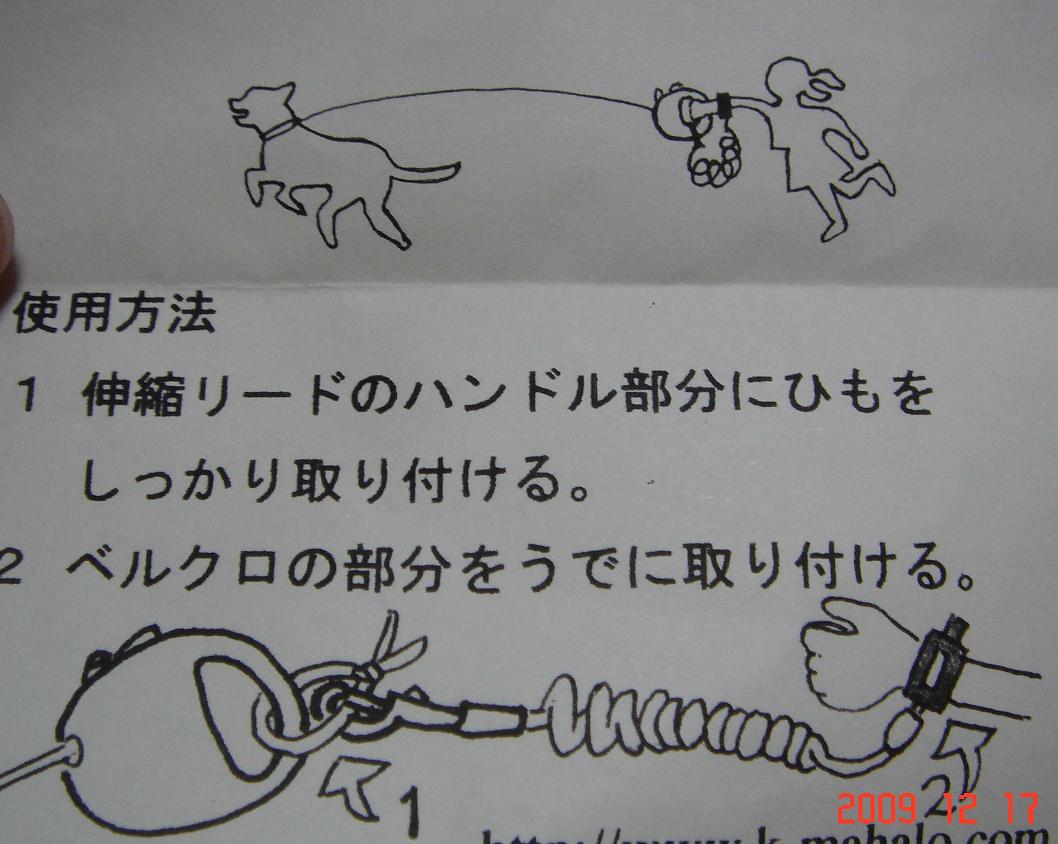 使用方法
1 伸縮リードのハンドル部分にひもを
しっかり取り付ける。
2 ベルクロの部分をうでに取り付ける。
1
2
2009 12 17
http://www.k-mahalo.com